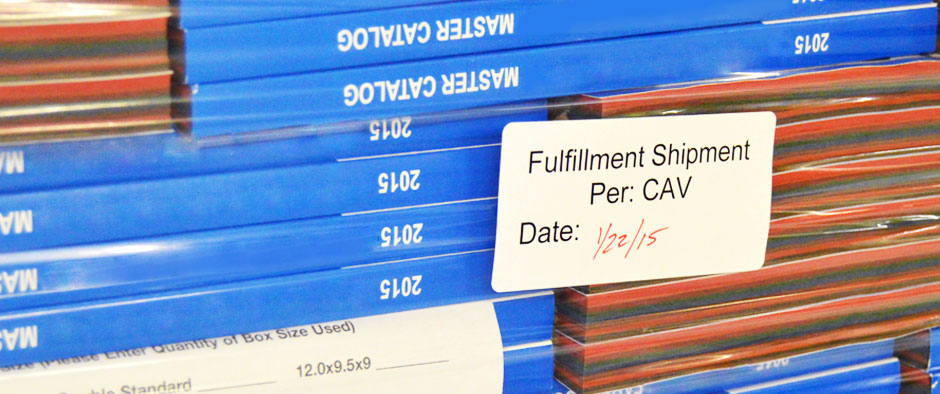 2015
MASTER CATALOG
2015
MASTER CATALOG
2015
2015
MA
2015
MA
2015
MA
MA
Fulfillment Shipment
Per: CAV
Date: 1/22/15
Size (Please Enter Quantity of Box Size Used)
Standard
12.0x9.5x9